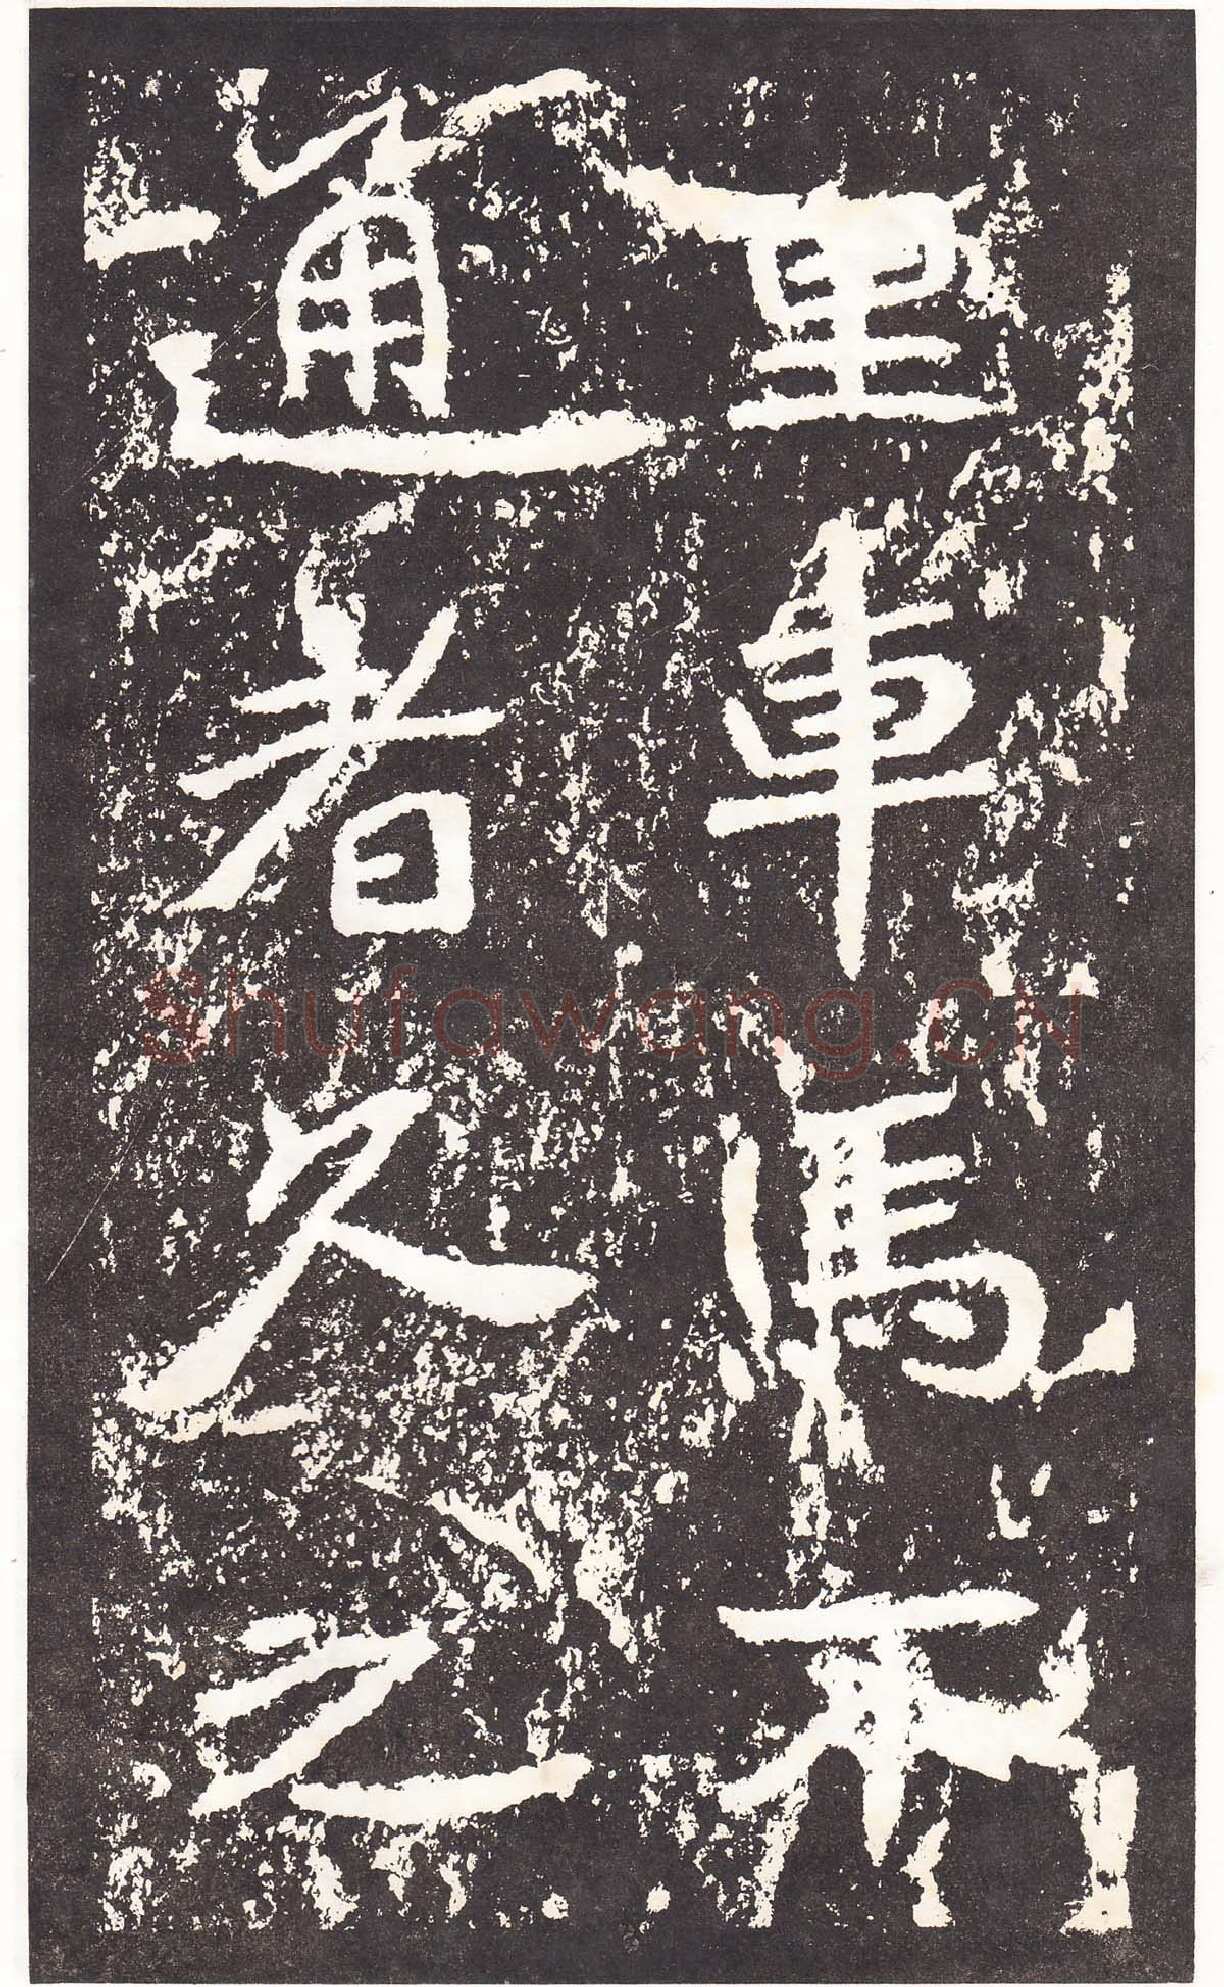 里車馬不
通者久之
Shufawang.CN